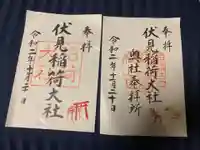 奉拝
伏見稲荷大社
令和二年十月二十日
奉拝
伏見稲荷大社
奥社奉拝所
令和二年十月二十日